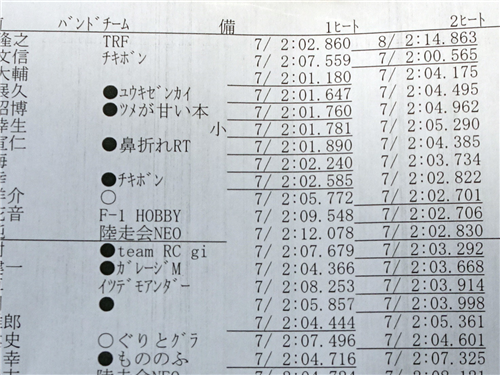 バンドﾞチーム 備 1ヒート 2ヒート
隆之 TRF 7/ 2:02.860 8/ 2:14.863
文信 チキボン 7/ 2:07.559 7/ 2:00.565
大輔 7/ 2:01.180 7/ 2:04.175
展久 ●ユウキゼンカイ 7/ 2:01.647 7/ 2:04.495
昭博 ●ツメが甘い本 7/ 2:01.760 7/ 2:04.962
幸生 小 7/ 2:01.781 7/ 2:05.290
宣仁 ●鼻折れRT 7/ 2:01.890 7/ 2:04.385
海 7/ 2:02.240 7/ 2:03.734
●チキボン 7/ 2:02.585 7/ 2:02.822
洋介 ○ 7/ 2:05.772 7/ 2:02.701
花音 F-1 HOBBY 7/ 2:09.548 7/ 2:02.706
陸走会NEO 7/ 2:12.078 7/ 2:02.830
●team RC gi 7/ 2:07.679 7/ 2:03.292
一 ●ガレージM 7/ 2:04.366 7/ 2:03.668
イツデモアンダー 7/ 2:08.253 7/ 2:03.914
● 7/ 2:05.857 7/ 2:03.998
郎 7/ 2:04.444 7/ 2:05.361
史 ○ぐりとグラ 7/ 2:07.496 7/ 2:04.601
幸 ●もののふ 7/ 2:04.716 7/ 2:07.325
陸走会NEO